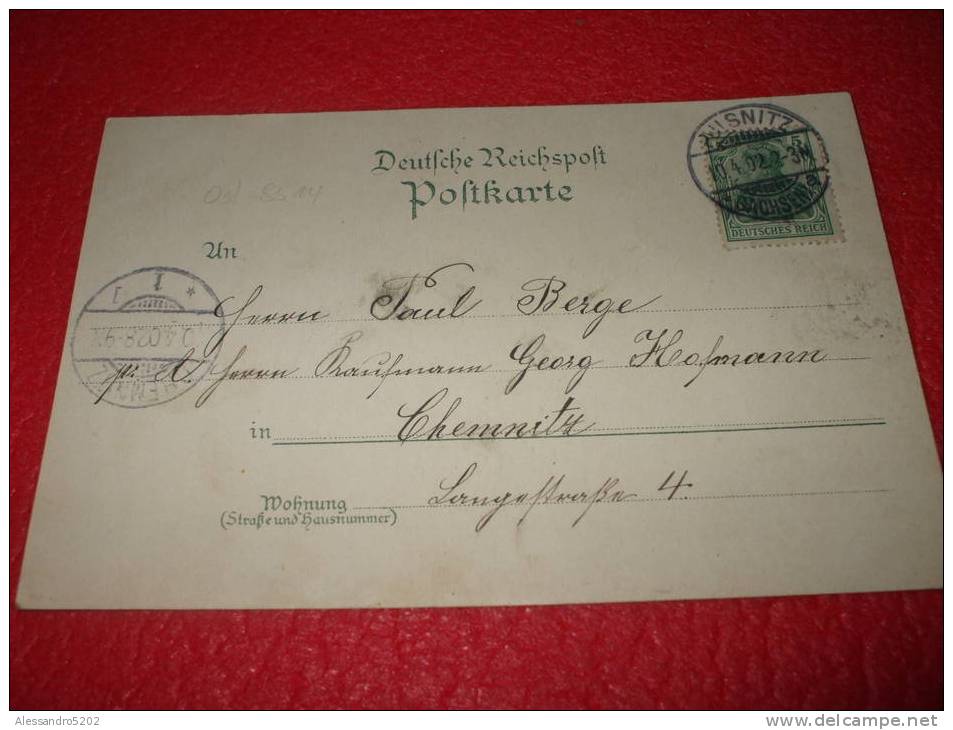 Deutsche Reichspost
Postkarte
An
Herrn Paul Berge
pr. A. Herrn Kaufmann Georg Hofmann
in Chemnitz
Wohnung Langestraße 4.
(Straße und Hausnummer)
PULSNITZ
10.4.02.2-3N
(SACHSEN)
5
DEUTSCHES REICH
* 1 1
.4.02.8-9
Alessandro5202
www.delcampe.net